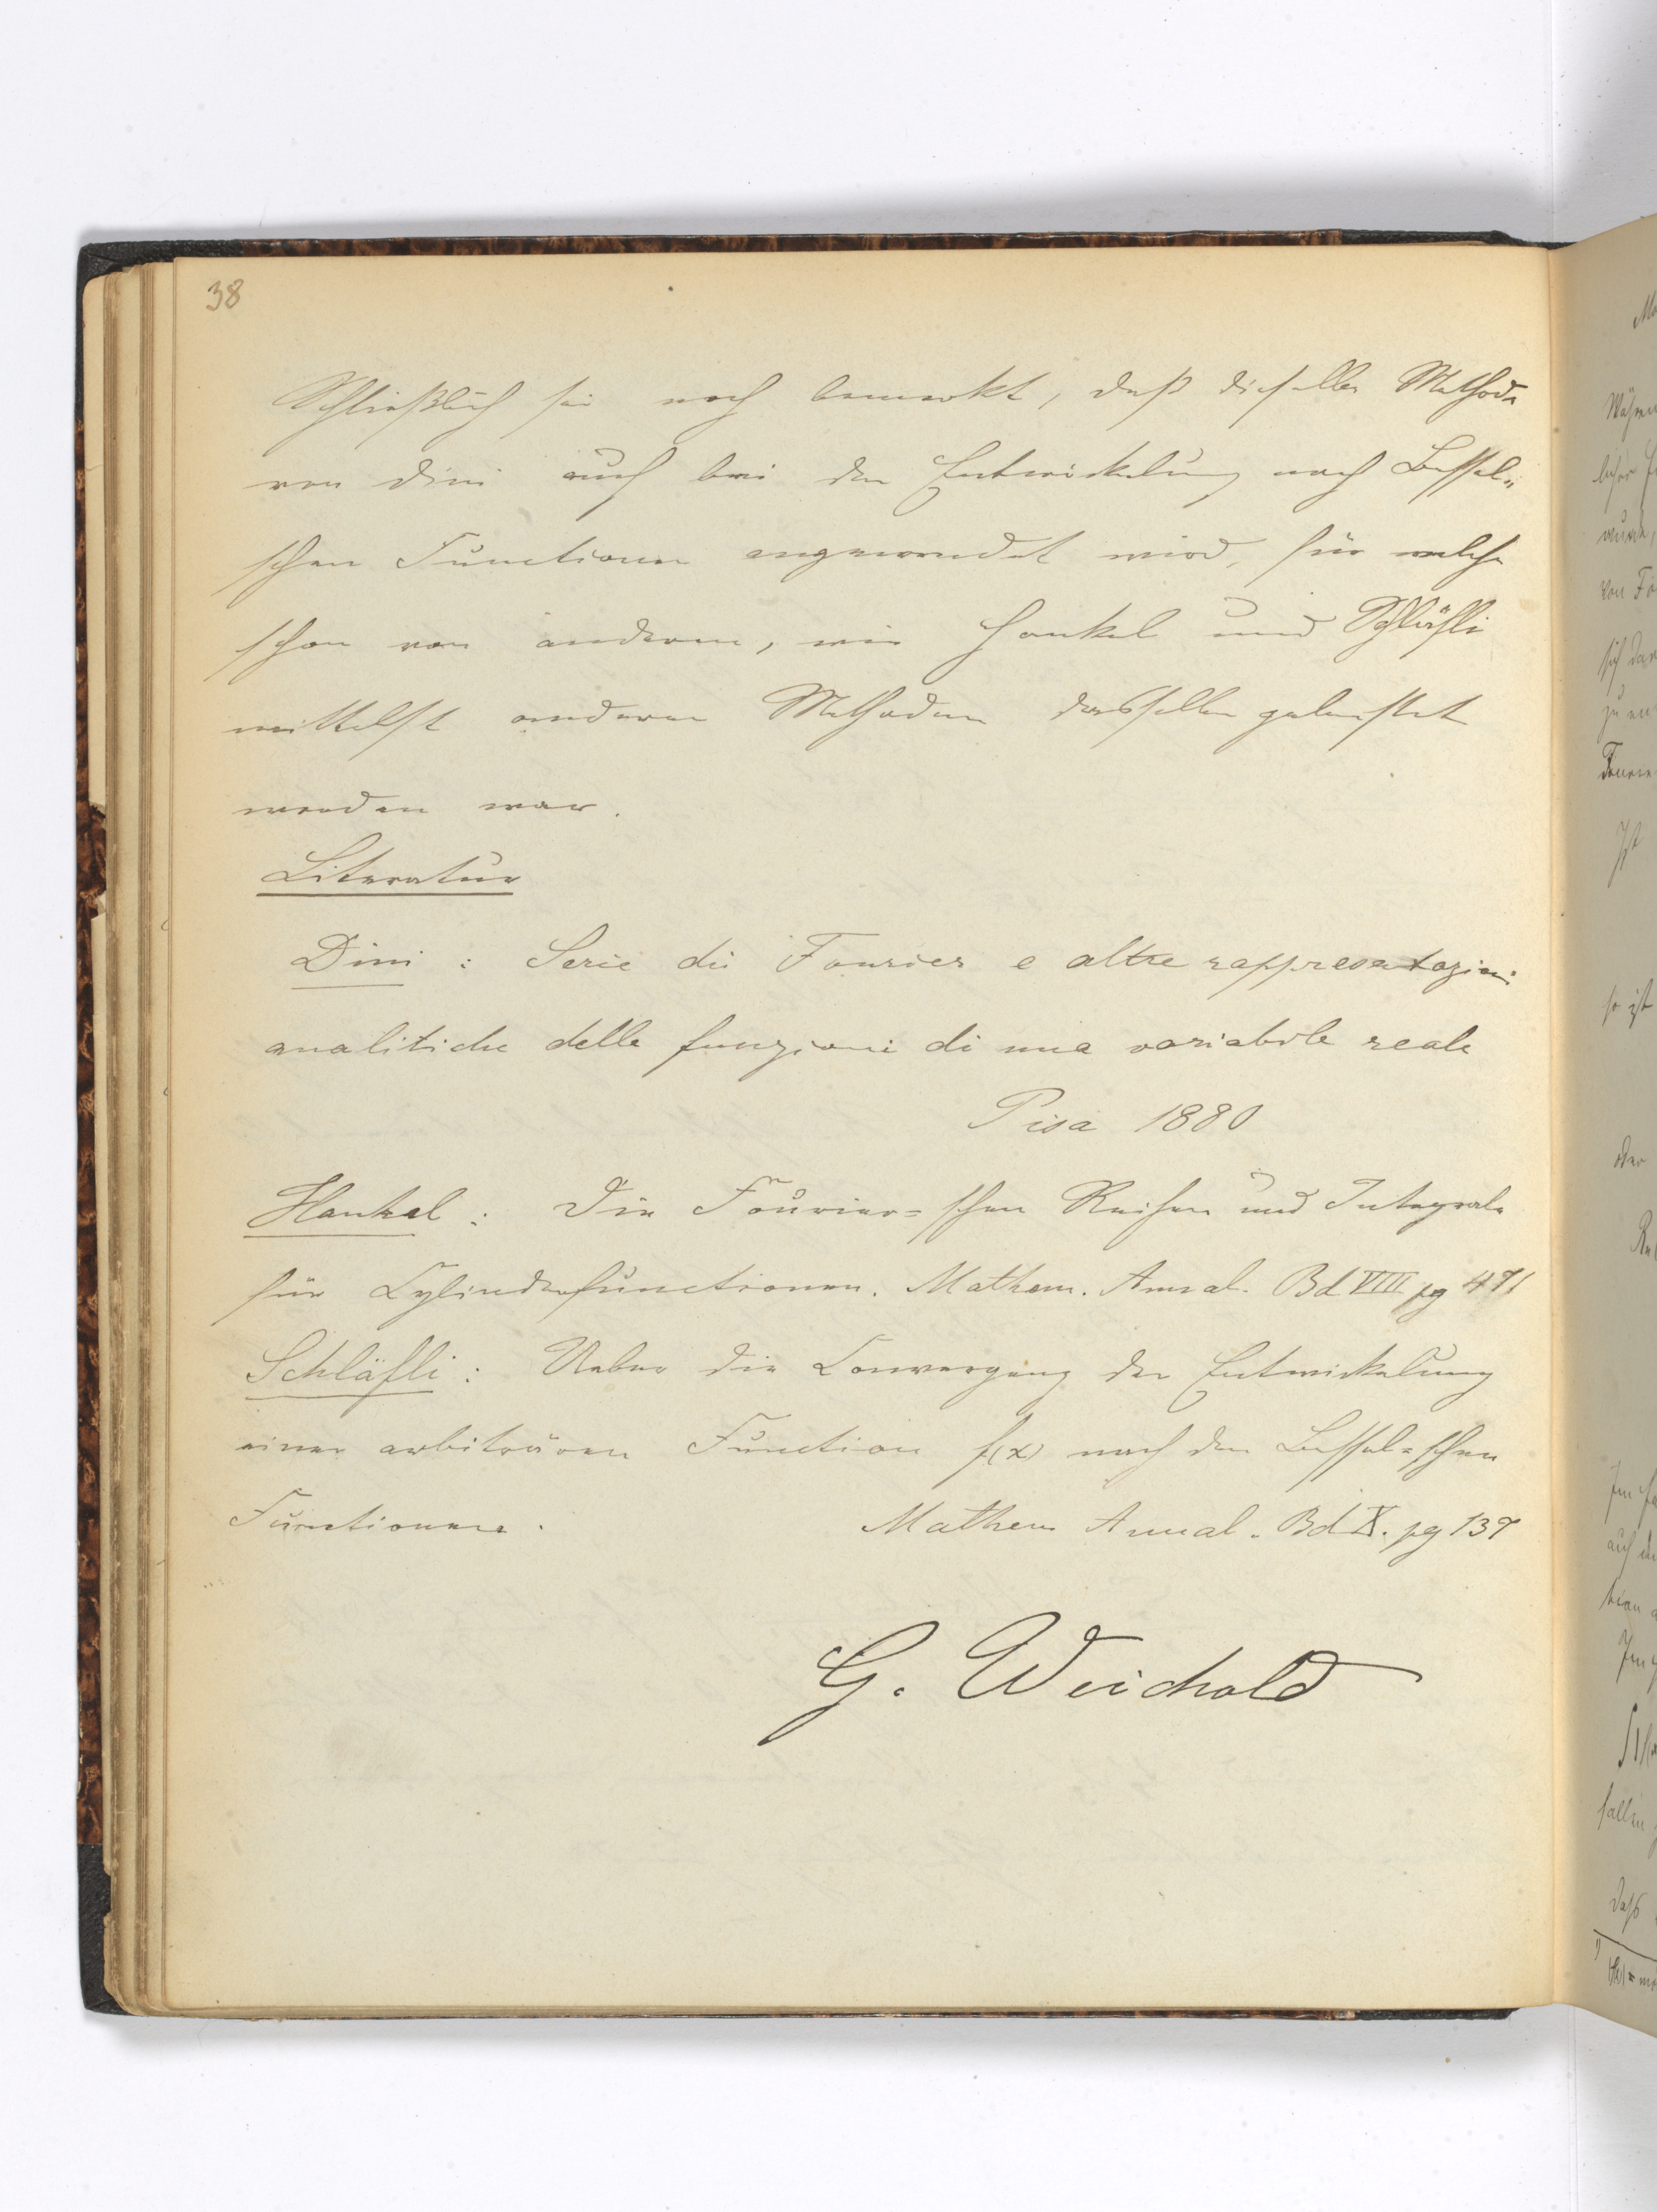 38
Schließlich sei noch bemerkt, daß dieselbe Methode
von Dini auch bei der Entwickelung nach Bessel-
schen Functionen angewendet wird, für welche
schon von anderen, wie Hankel und Schläfli
mittelst anderer Methoden dasselbe geleistet
worden war.
Literatur
Dini : Serie di Fourier e altre rappresentazioni
analitiche delle funzioni di una variabile reale
Pisa 1880
Hankel : Die Fourier-schen Reihen und Integrale
für Cylinderfunctionen. Mathem. Annal. Bd VIII pg 471
Schläfli : Ueber die Convergenz der Entwickelung
einer arbiträren Function f(x) nach den Bessel-schen
Functionen. Mathem Annal. Bd X. pg 137
G. Weichold